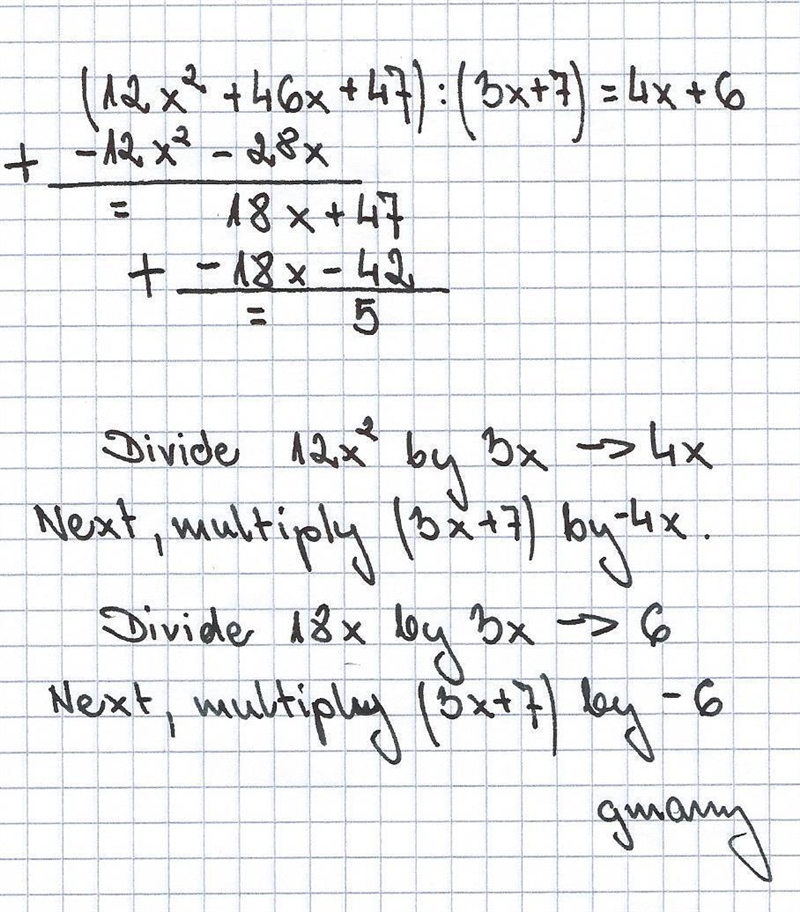 (12x² + 46x + 47) : (3x + 7) = 4x + 6
+ -12x² - 28x
= 18x + 47
+ -18x - 42
= 5
Divide 12x² by 3x → 4x
Next, multiply (3x+7) by -4x.
Divide 18x by 3x → 6
Next, multiply (3x+7) by -6
gmany